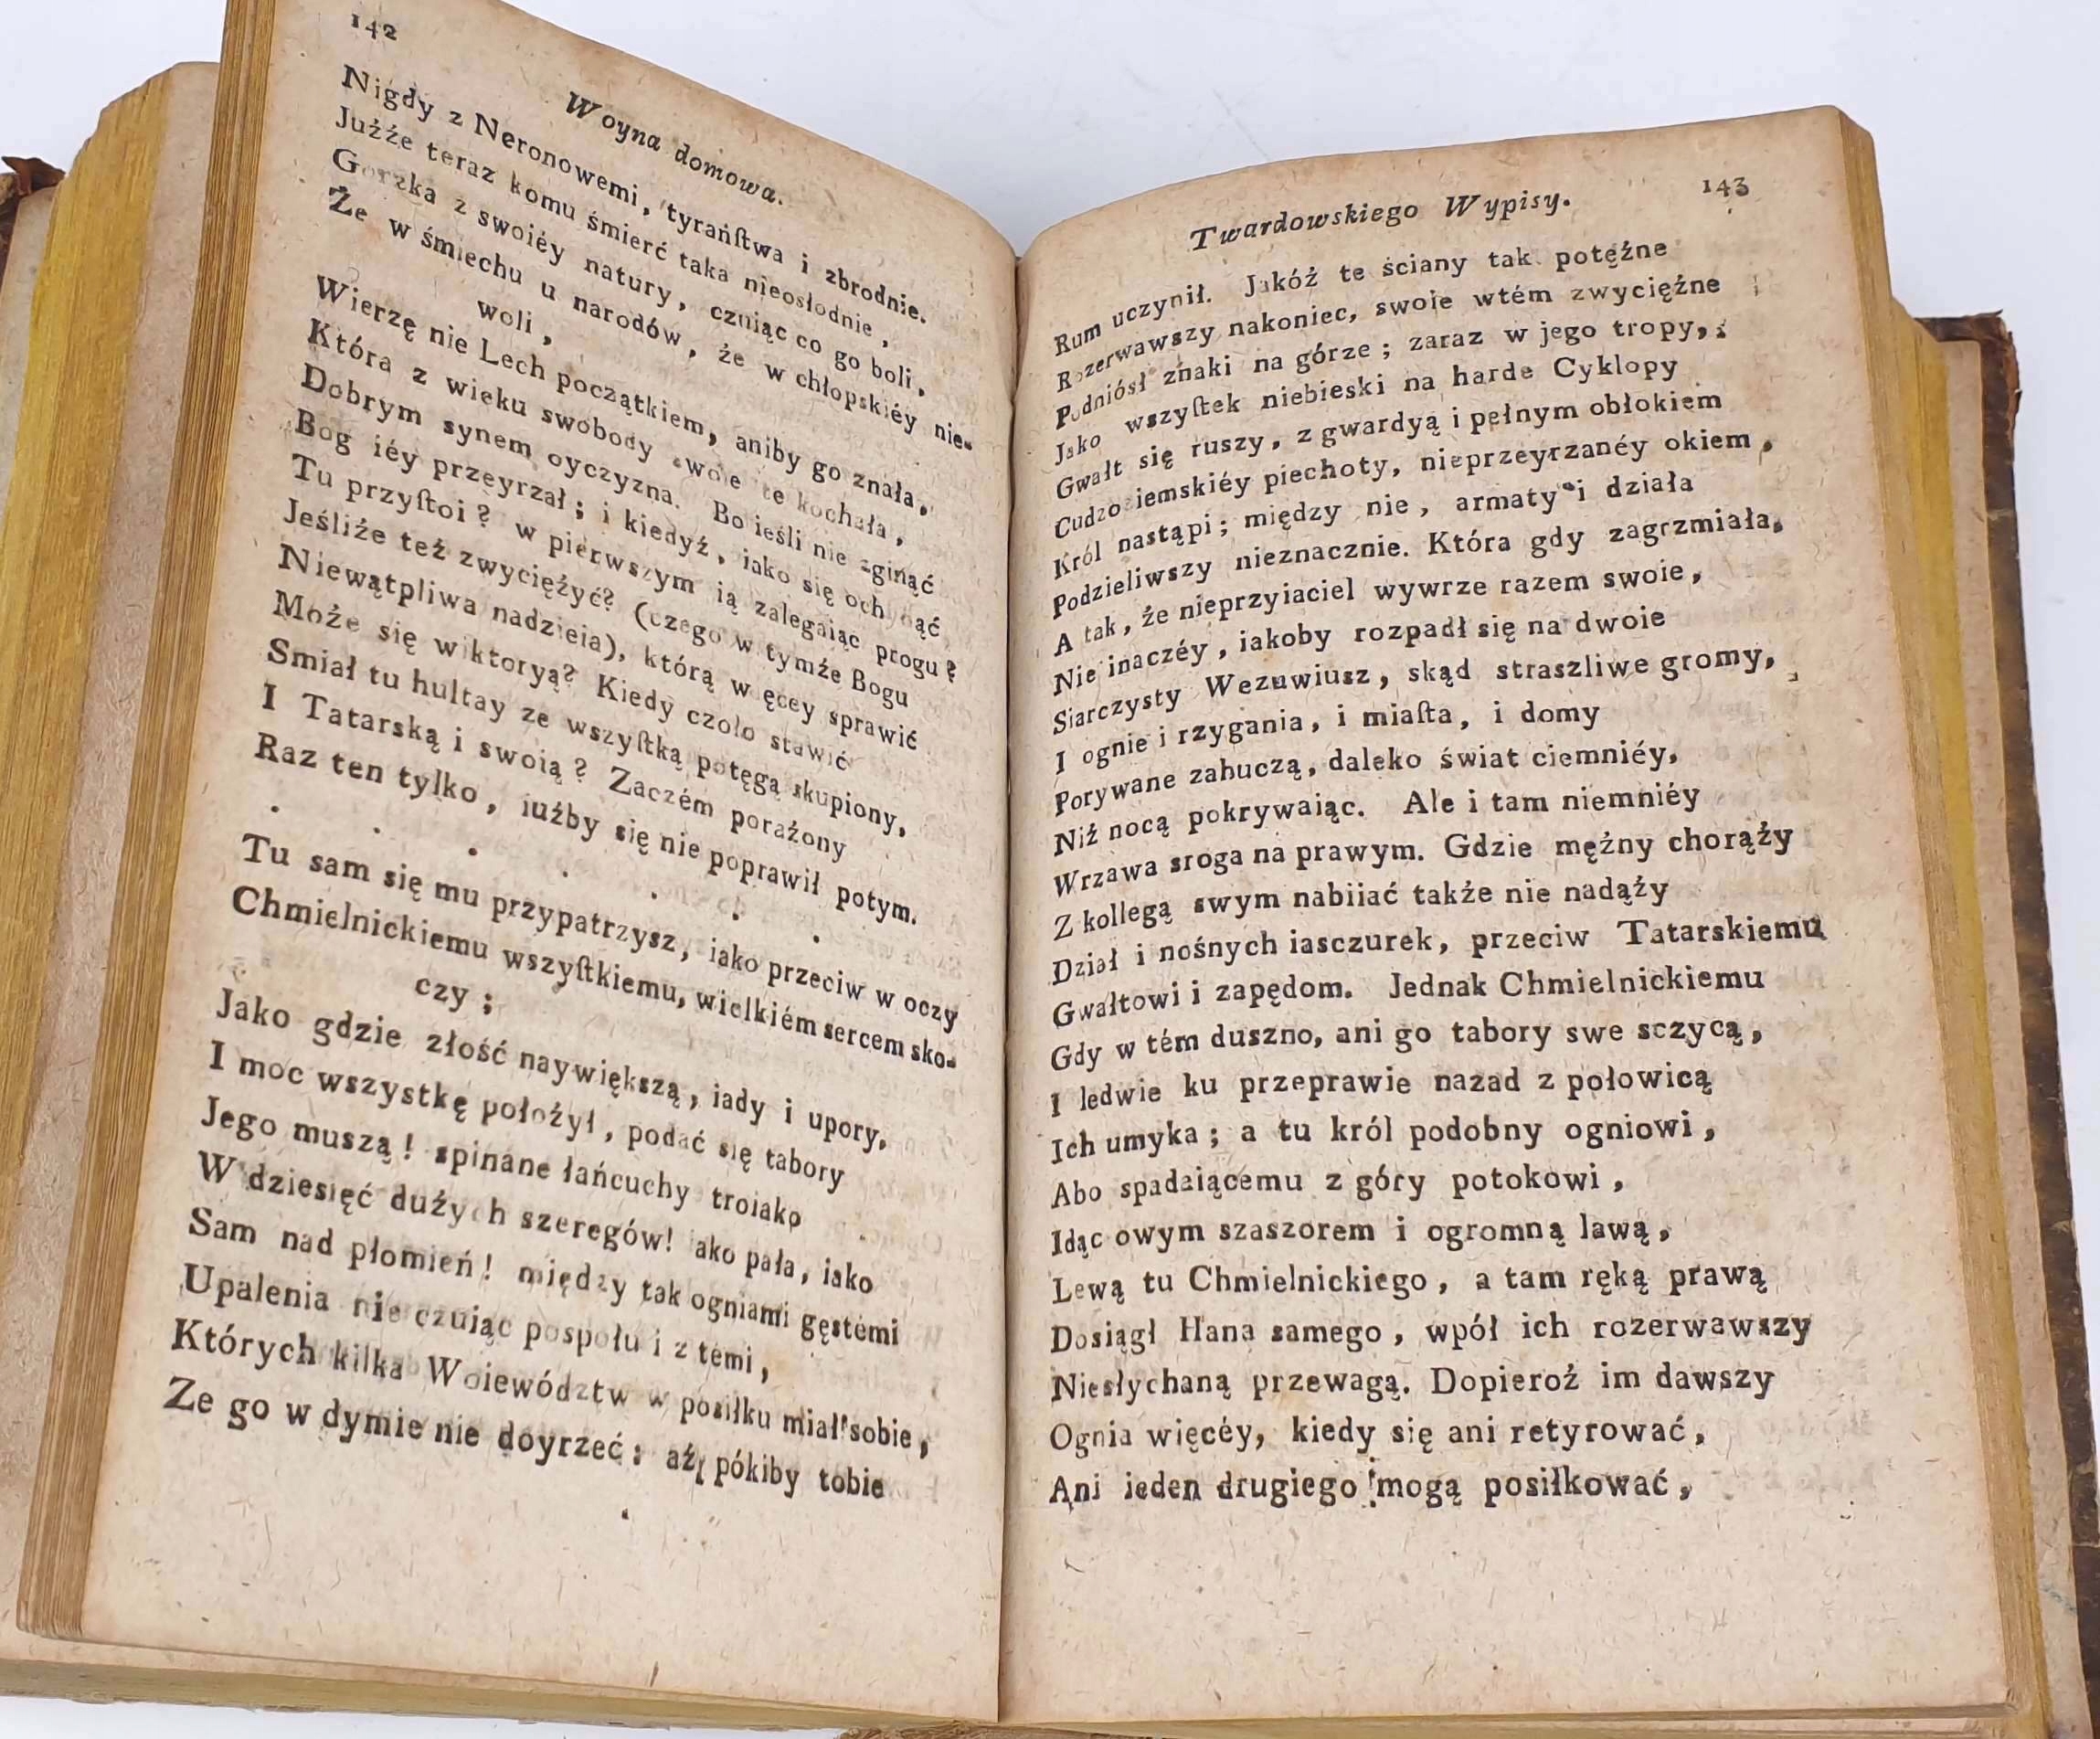 142
Woyna domowa.
Nigdy z Neronowemi, tyrańſtwa i zbrodnie.
Jużże teraz komu śmierć taka nieosłodnie,
Gorzka z swoiéy natury, czuiąc co go boli,
Że w śmiechu u narodów, że w chłopskiéy nie-
woli,
Wierzę nie Lech początkiem, aniby go znała,
Która z wieku swobody swoie te kochała,
Dobrym synem oyczyzna. Bo ieśli nie zginąć
Bog iéy przeyrzał; i kiedyż, iako się ochynąć
Tu przyſtoi? w pierwszym ią zalegaiąc progu?
Jeśliże też zwyciężyć? (czego w tymże Bogu
Niewątpliwa nadzieia), którą więcey sprawić
Może się wiktoryą? Kiedy czoło stawić
Smiał tu hultay ze wszyſtką potęgą skupiony,
I Tatarską i swoią? Zaczém porażony
Raz ten tylko, iużby się nie poprawił potym.
. . . . . . .
Tu sam się mu przypatrzysz, iako przeciw w oczy
Chmielnickiemu wszyſtkiemu, wielkiém sercem sko-
czy;
Jako gdzie złość naywiększą, iady i upory,
I moc wszystkę położył, podać się tabory
Jego muszą! spinane łańcuchy troiako
W dziesięć dużych szeregów! iako pała, iako
Sam nad płomień! między tak ogniami gęstemi
Upalenia nie czuiąc pospołu i z temi,
Których kilka Woiewództw w posiłku miał sobie,
Ze go w dymie nie doyrzeć: aż pókiby tobie
143
Twardowskiego Wypisy.
Rum uczynił. Jakóż te ściany tak potężne
Rozerwawszy nakoniec, swoie wtém zwyciężne
Podniósł znaki na górze; zaraz w jego tropy,
Jako wszyſtek niebieski na harde Cyklopy
Gwałt się ruszy, z gwardyą i pełnym obłokiem
Cudzoziemskiéy piechoty, nieprzeyrzanéy okiem,
Król nastąpi; między nie, armaty i działa
Podzieliwszy nieznacznie. Która gdy zagrzmiała,
A tak, że nieprzyiaciel wywrze razem swoie,
Nie inaczéy, iakoby rozpadł się na dwoie
Siarczysty Wezuwiusz, skąd straszliwe gromy,
I ognie i rzygania, i miaſta, i domy
Porywane zahuczą, daleko świat ciemniéy,
Niż nocą pokrywaiąc. Ale i tam niemniéy
Wrzawa sroga na prawym. Gdzie mężny chorąży
Z kollegą swym nabiiać także nie nadąży
Dział i nośnych iasczurek, przeciw Tatarskiemu
Gwałtowi i zapędom. Jednak Chmielnickiemu
Gdy w tém duszno, ani go tabory swe sczycą,
I ledwie ku przeprawie nazad z połowicą
Ich umyka; a tu król podobny ogniowi,
Abo spadaiącemu z góry potokowi,
Idąc owym szaszorem i ogromną lawą,
Lewą tu Chmielnickiego, a tam ręką prawą
Dosiągł Hana samego, wpół ich rozerwawszy
Niesłychaną przewagą. Dopieroż im dawszy
Ognia więcéy, kiedy się ani retyrować,
Ani ieden drugiego mogą posiłkować,